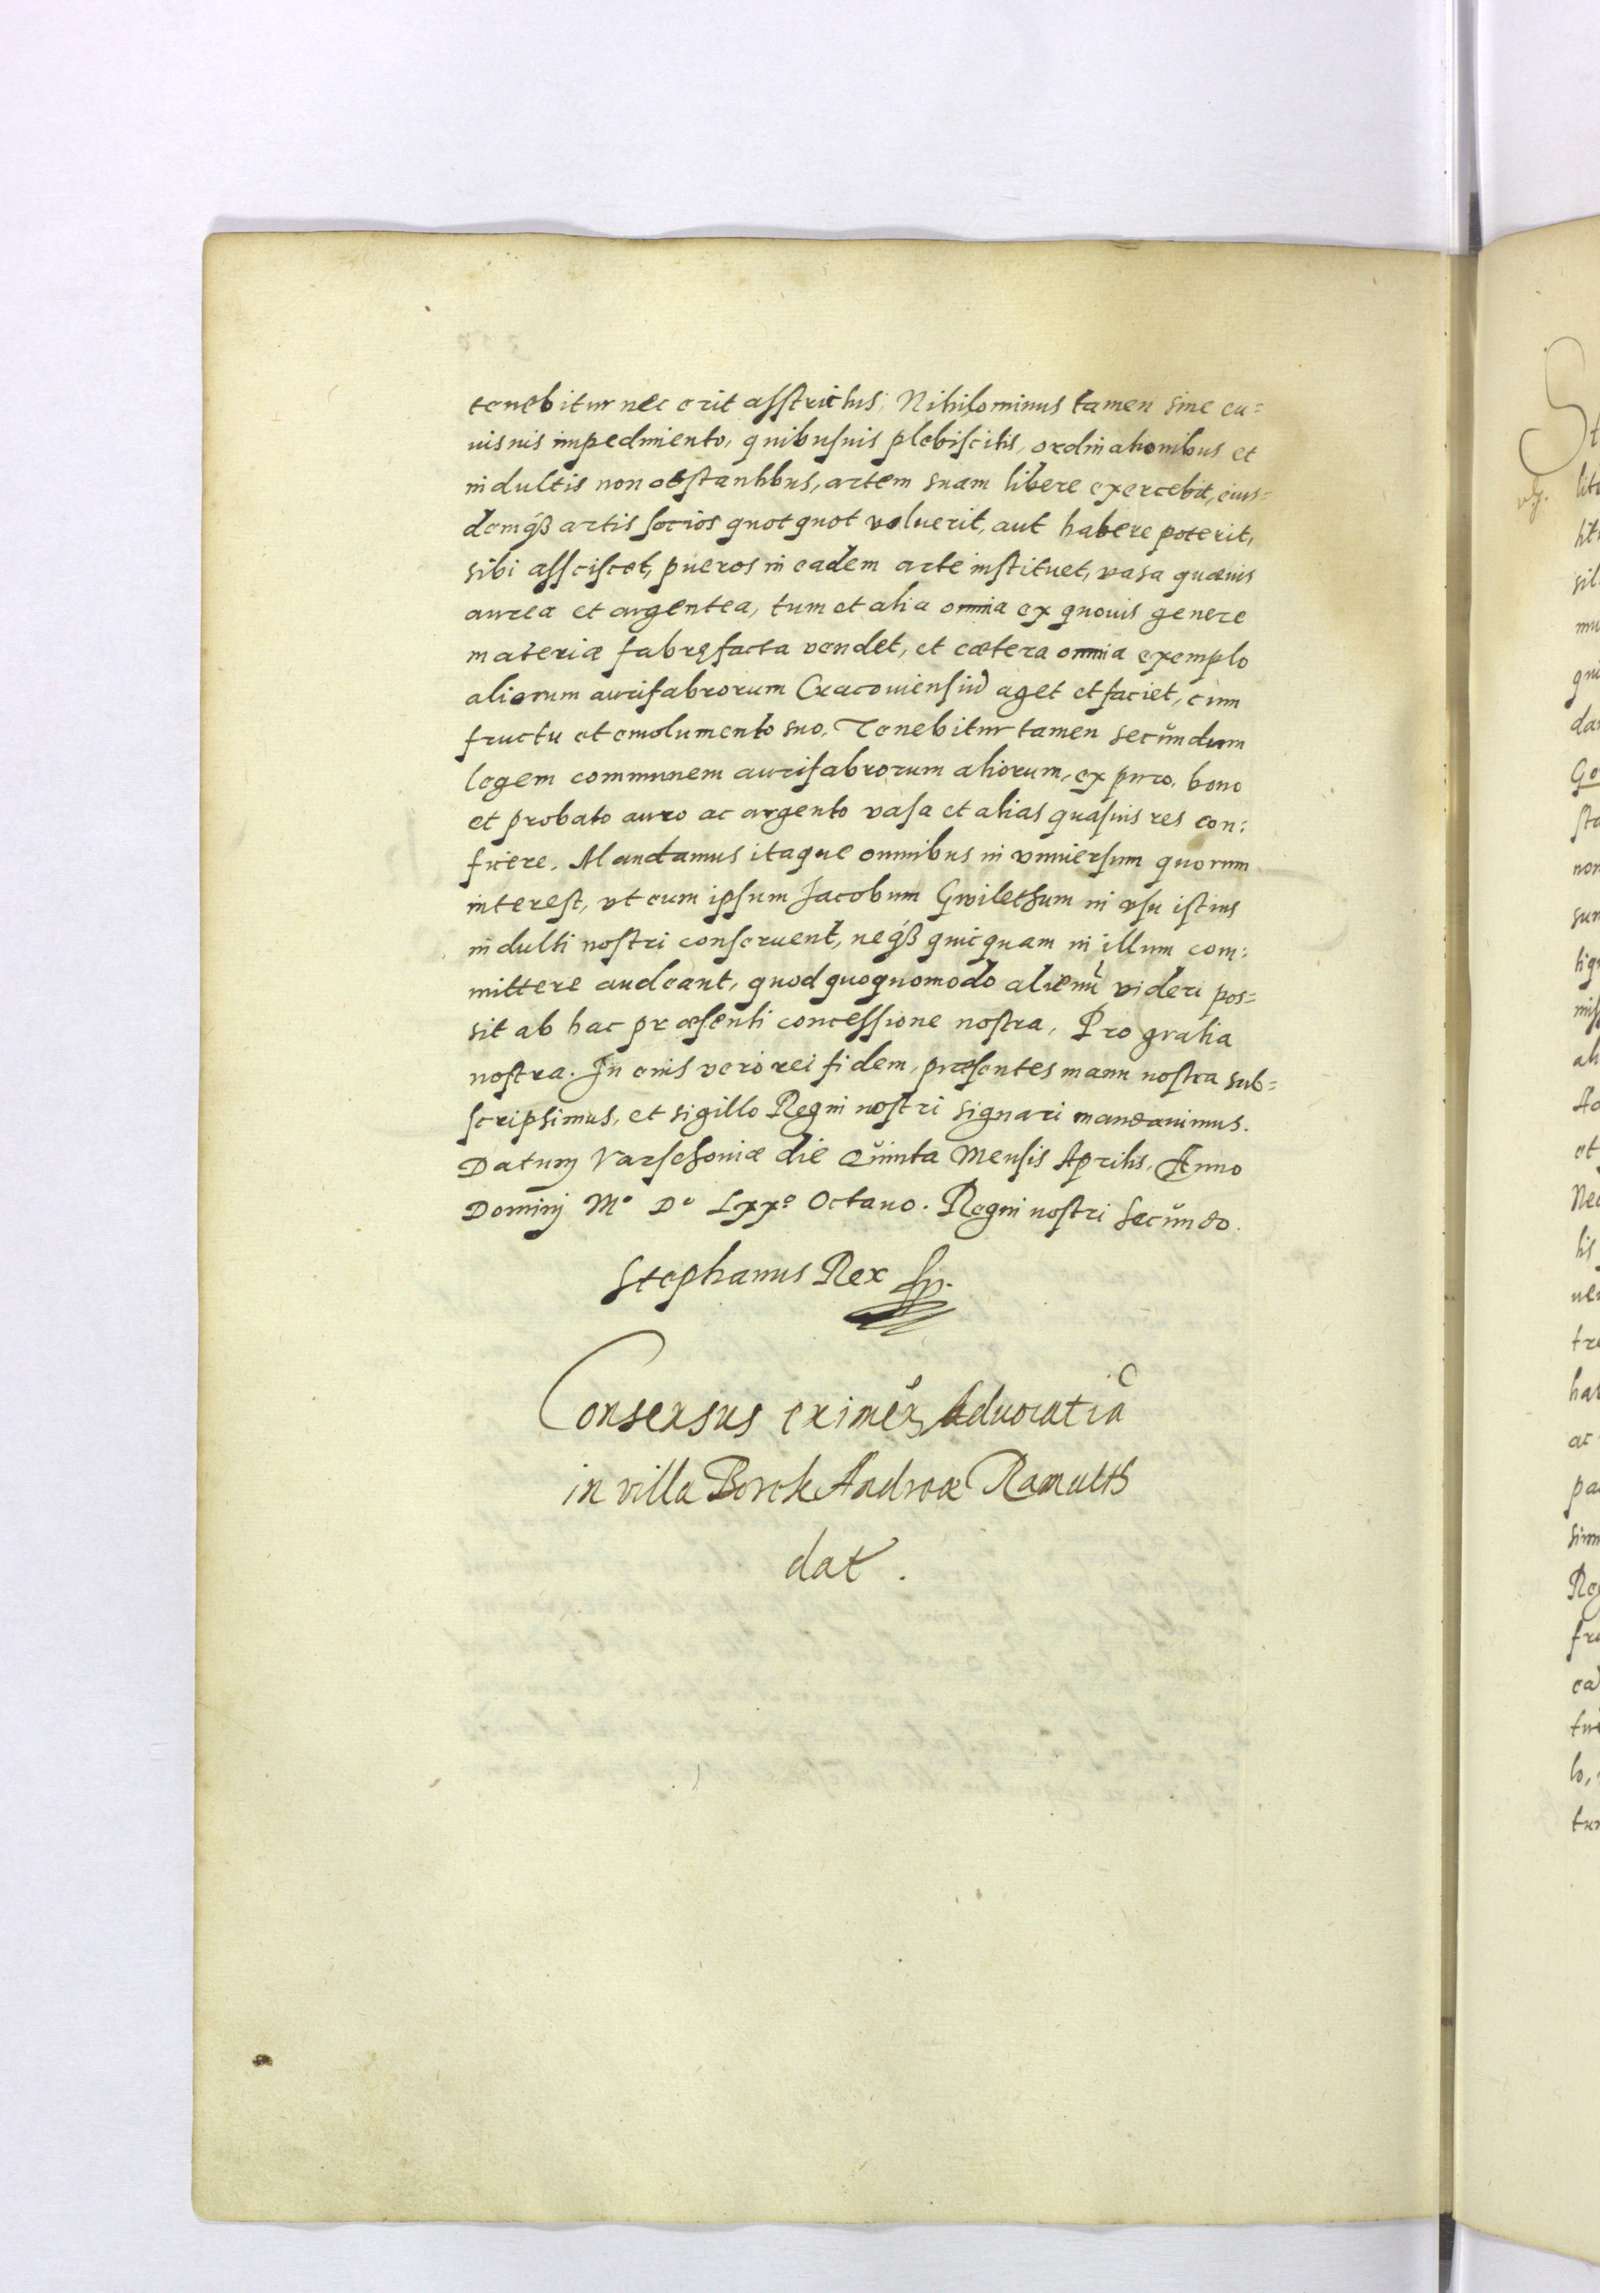 tenebitur nec erit asstrictus; Nihilominus tamen sine cu=
iusuis impedimento, quibusuis plebiscitis, ordinationibus et
indultis non obstantibus, artem suam libere exercebit, eius=
demq́ꝫ artis socios quotquot voluerit, aut habere poterit,
sibi assciscet, pueros in eadem arte instituet, vasa quæuis
aurea et argentea, tum et alia omnia ex quouis genere
materiæ fabręfacta vendet, et cætera omnia exemplo
aliorum aurifabrorum Cracouiensiū aget et faciet, cum
fructu et emolumento suo. Tenebitur tamen secŭndum
legem communem aurifabrorum aliorum, ex puro, bono
et probato auro ac argento vasa et alias quasuis res con:
ficere. Mandamus itaque omnibus in vniuersum quorum
interest, vt eum ipsum Jacobum Gwilethum in vsu istius
indulti nostri conseruent, neq́ꝫ quicquam in illum com:
mittere audeant, quod quoquomodo alienū videri pos=
sit ab hac præsenti concessione nostra, Pro gratia
nostra. In cuius vero rei fidem, præsentes manu nostra sub=
scripsimus, et sigillo Regni nostri signari mandauimus.
Datum Varschouiæ die Quinta Mensis Aprilis, Anno
Dominj Mº Dº Lxxº Octauo. Regni nostri Secŭndo.
Stephanus Rex
Consensus eximen̄ Aduocatiā
in villa Borek Andreæ Ramulth
dat.